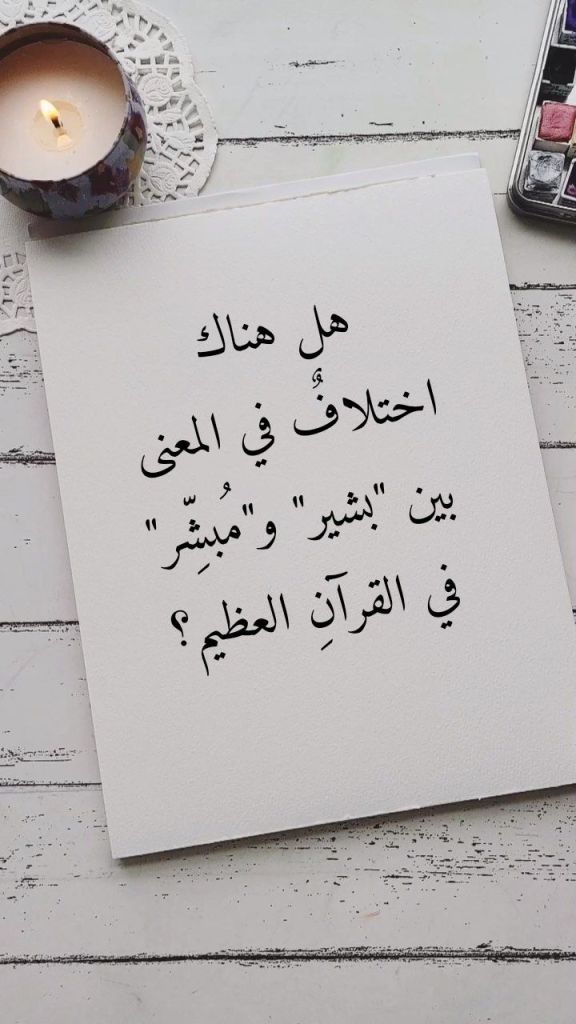 هل هناك
اختلافٌ في المعنى
بين "بشير" و"مُبشِّر"
في القرآنِ العظيم؟